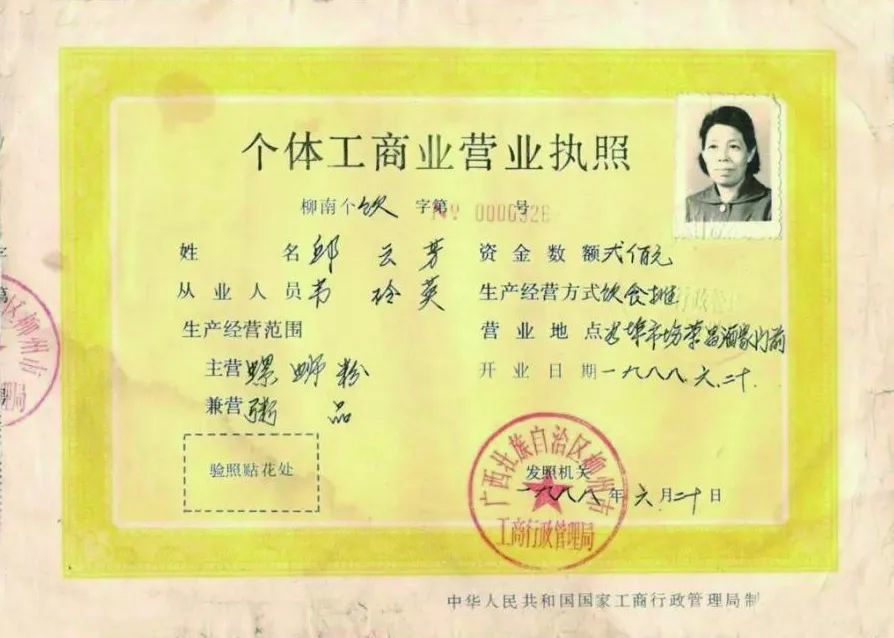 个体工商业营业执照
柳南个饮 字第 号
NY 0006926
姓 名 邱 云 芳
资金数额 弍佰元
从业人员 韦 玲 英
生产经营方式 饮食摊
生产经营范围
营业地点 谷埠市场荣昌酒家门前
主营 螺 蛳 粉
开业日期 一九八八.六.二十.
兼营 粥 品
验照贴花处
发照机关
一九八八年 六月二十日
广西壮族自治区柳州市
工商行政管理局
中华人民共和国国家工商行政管理局制
字
第
区柳州市
理局
行政管